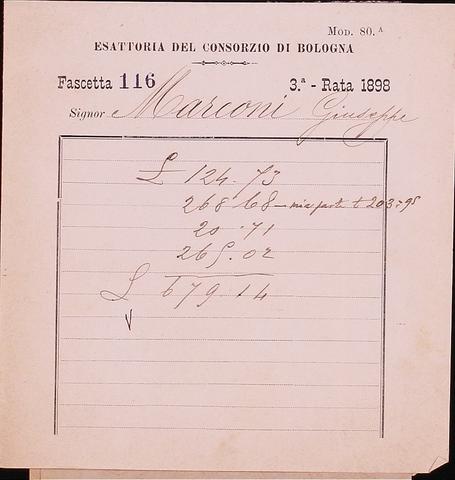 MOD. 80.A
ESATTORIA DEL CONSORZIO DI BOLOGNA
Fascetta 116 3.a - Rata 1898
Signor Marconi Giuseppe
£ 124.73
268 68 - mia parte £ 203.95
20.71
265.02
£ 679 14